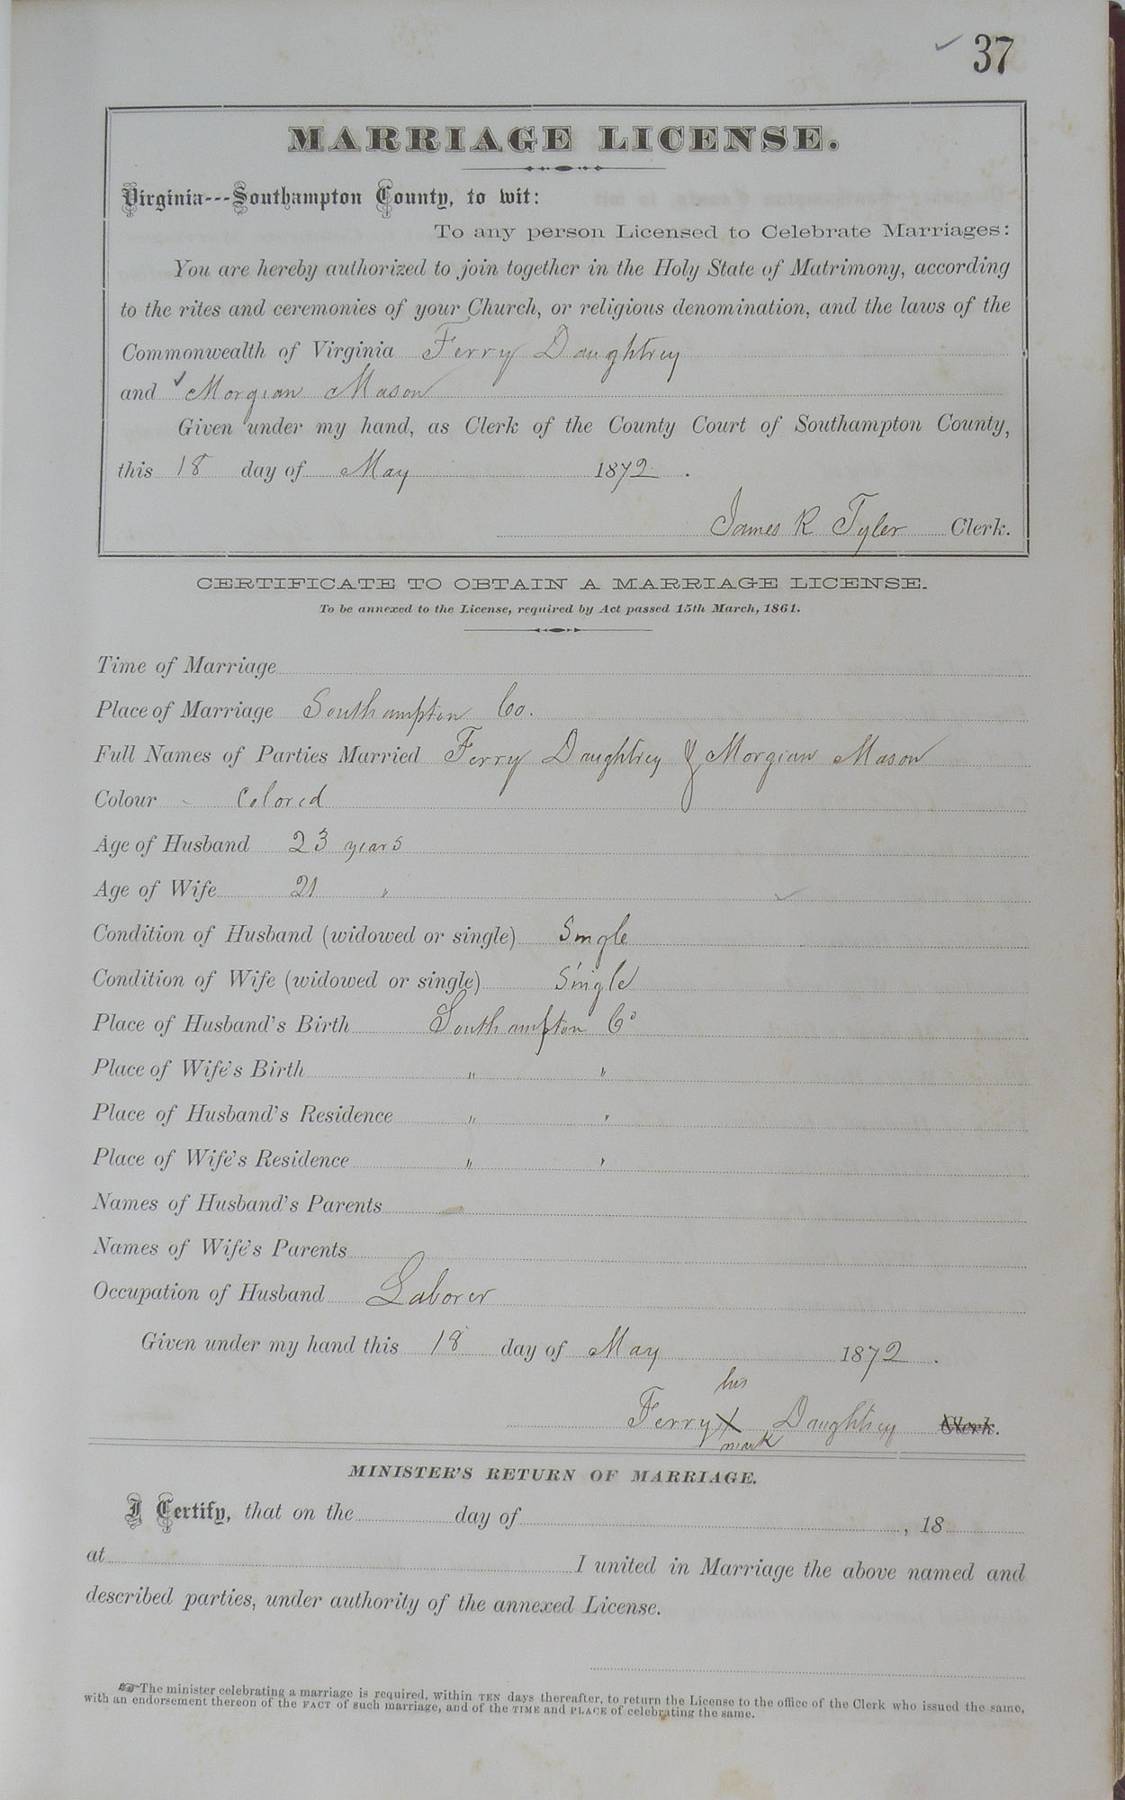 37
MARRIAGE LICENSE.
Virginia---Southampton County, to wit:
To any person Licensed to Celebrate Marriages:
You are hereby authorized to join together in the Holy State of Matrimony, according
to the rites and ceremonies of your Church, or religious denomination, and the laws of the
Commonwealth of Virginia Ferry Daughtrey
and Morgian Mason
Given under my hand, as Clerk of the County Court of Southampton County,
this 18 day of May 1872.
James R Tyler Clerk.
CERTIFICATE TO OBTAIN A MARRIAGE LICENSE.
To be annexed to the License, required by Act passed 15th March, 1861.
Time of Marriage
Place of Marriage Southampton Co.
Full Names of Parties Married Ferry Daughtrey & Morgian Mason
Colour Colored
Age of Husband 23 years
Age of Wife 21 "
Condition of Husband (widowed or single) Single
Condition of Wife (widowed or single) Single
Place of Husband's Birth Southampton Co
Place of Wife's Birth " "
Place of Husband's Residence " "
Place of Wife's Residence " "
Names of Husband's Parents
Names of Wife's Parents
Occupation of Husband Laborer
Given under my hand this 18 day of May 1872.
his
Ferry X Daughtrey Clerk.
mark
MINISTER'S RETURN OF MARRIAGE.
I Certify, that on the day of , 18
at I united in Marriage the above named and
described parties, under authority of the annexed License.
☞The minister celebrating a marriage is required, within TEN days thereafter, to return the License to the office of the Clerk who issued the same,
with an endorsement thereon of the FACT of such marriage, and of the TIME and PLACE of celebrating the same.